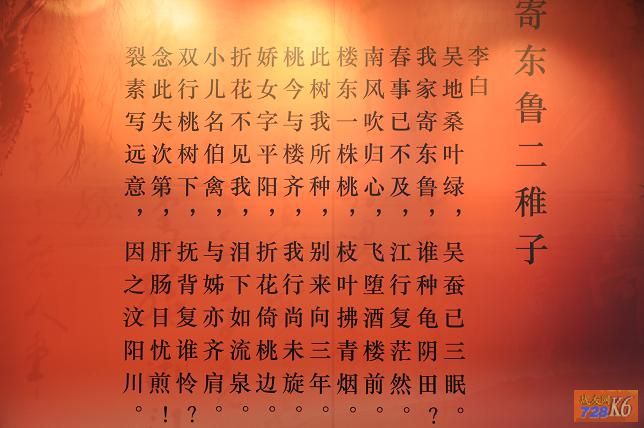 寄东鲁二稚子
李白
吴地桑叶绿，吴蚕已三眠。
我家寄东鲁，谁种龟阴田？
春事已不及，江行复茫然。
南风吹归心，飞堕酒楼前。
楼东一株桃，枝叶拂青烟。
此树我所种，别来向三年。
桃今与楼齐，我行尚未旋。
娇女字平阳，折花倚桃边。
折花不见我，泪下如流泉。
小儿名伯禽，与姊亦齐肩。
双行桃树下，抚背复谁怜？
念此失次第，肝肠日忧煎！
裂素写远意，因之汶阳川。
728 K6